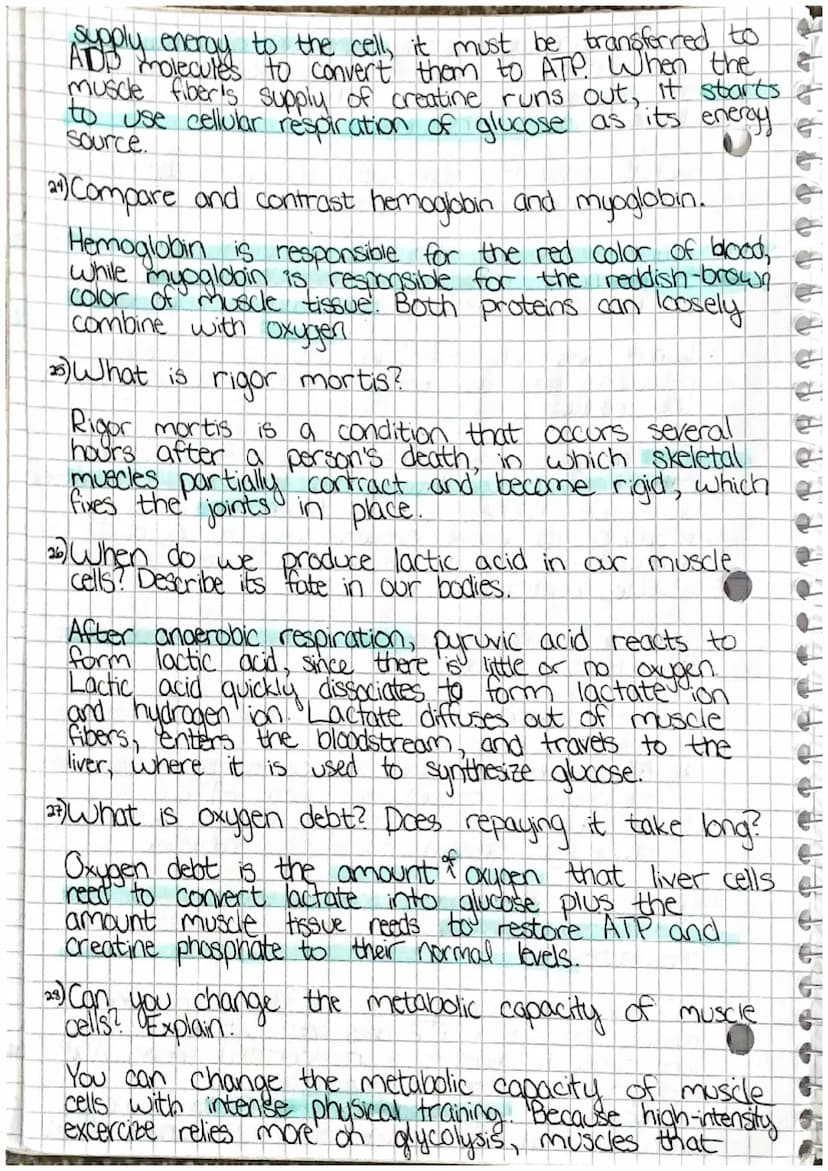 supply energy to the cell, it must be transferred to
ADP molecules to convert them to ATP. When the
muscle fiber's supply of creatine runs out, it starts
to use cellular respiration of glucose as its energy
source.
24) Compare and contrast hemoglobin and myoglobin.
Hemoglobin is responsible for the red color of blood,
while myoglobin is responsible for the reddish-brown
color of muscle tissue. Both proteins can loosely
combine with oxygen
25) What is rigor mortis?
Rigor mortis is a condition that occurs several
hours after a person's death, in which skeletal
muscles partially contract and become rigid, which
fixes the joints in place.
26) When do we produce lactic acid in our muscle
cells? Describe its fate in our bodies.
After anaerobic respiration, pyruvic acid reacts to
form lactic acid, since there is little or no oxygen.
Lactic acid quickly dissociates to form lactate ion
and hydrogen ion. Lactate diffuses out of muscle
fibers, enters the bloodstream, and travels to the
liver, where it is used to synthesize glucose.
27) What is oxygen debt? Does repaying it take long?
Oxygen debt is the amount of oxygen that liver cells
need to convert lactate into glucose plus the
amount muscle tissue needs to restore ATP and
creatine phosphate to their normal levels.
28) Can you change the metabolic capacity of muscle
cells? Explain.
You can change the metabolic capacity of muscle
cells with intense physical training. Because high-intensity
excercize relies more on glycolysis, muscles that